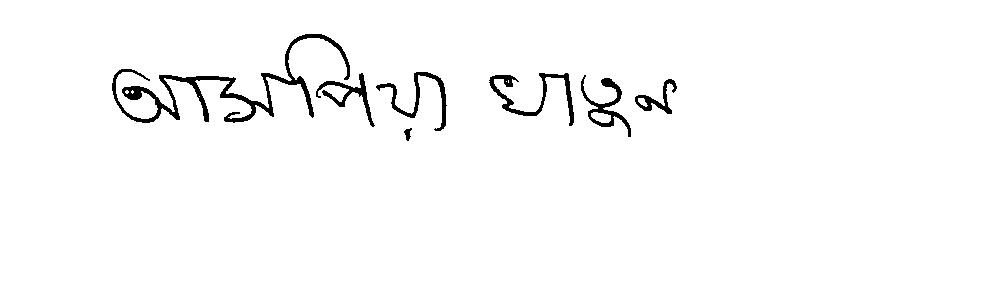 আসপিয়া খাতুন